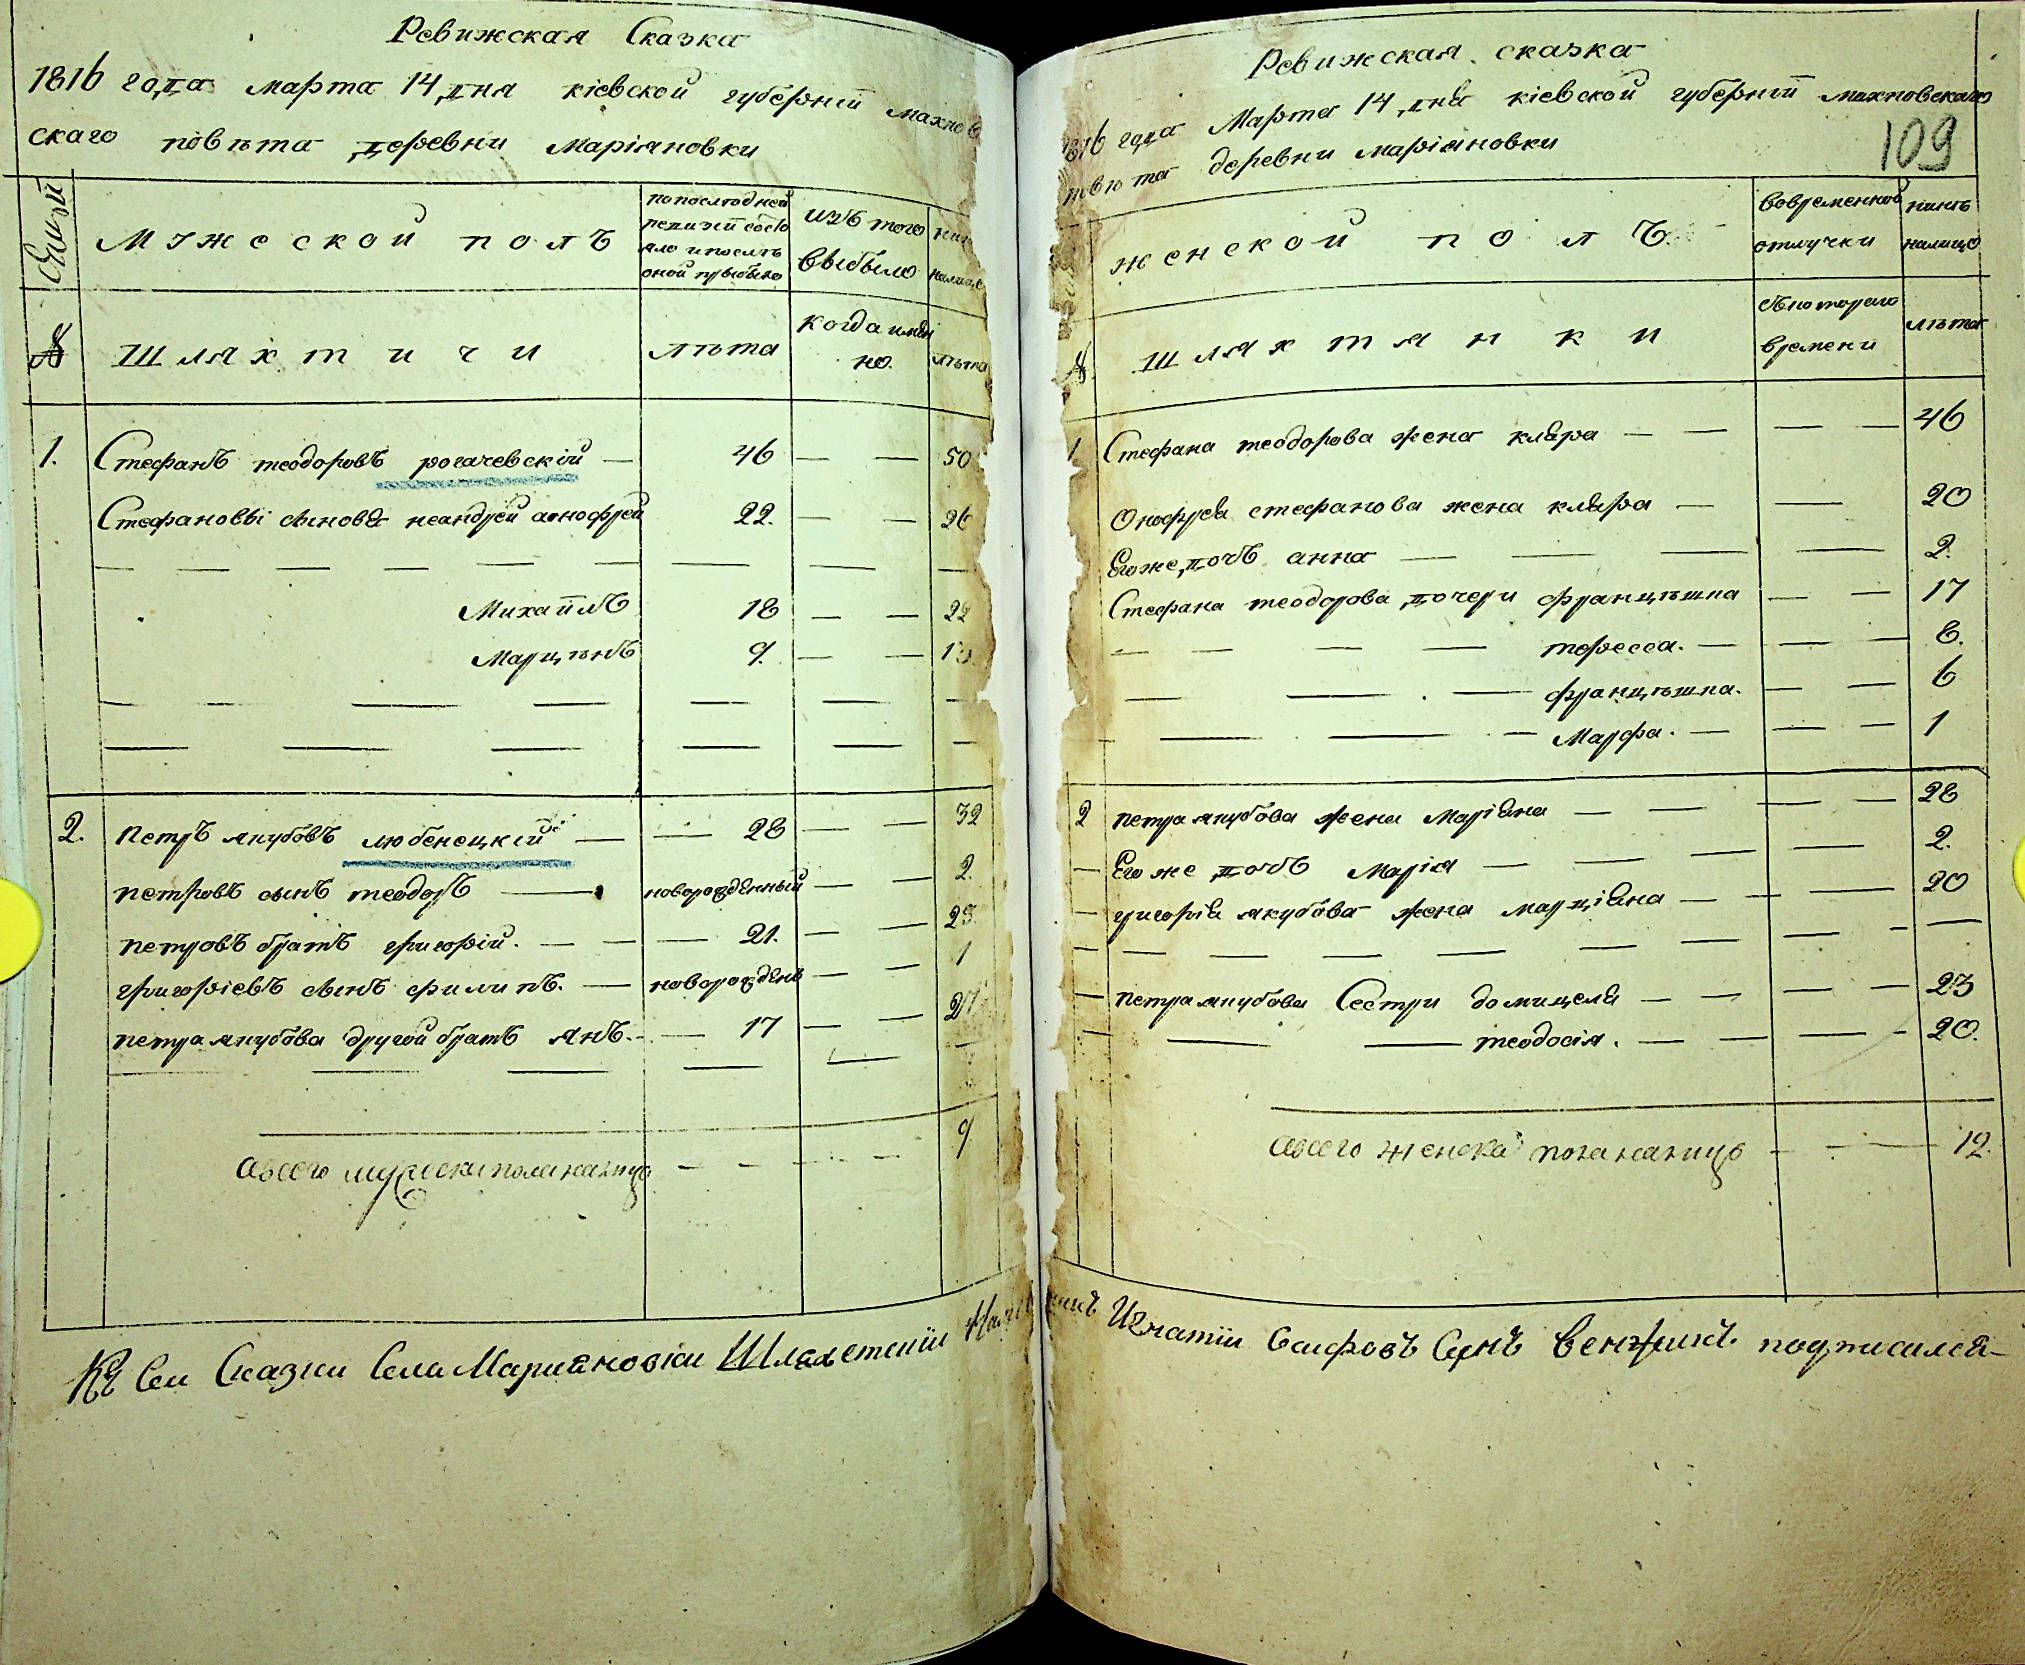 Ревижская Сказка
1816 года марта 14 дня кіевской губерніи махнов
скаго повѣта деревни маріяновки
Мужеской полъ
попослюдней
ревизіи состо
яло и послѣ
оной прибыло
изъ того
выбыло
налице
№
Шляхтичи
лѣта
когда имян
но.
лѣта
1. Стефанъ теодоровъ рогачевскій — 46 — — 50
Стефановы сынова андрей онофрей 22. — — 26
Михайлъ 18 — — 22
Марцѣнъ 9. — — 13
2. петръ якубовъ любенецкій — — 28 — — 32
петровъ сынъ теодоръ — новорожденный — — 2.
петровъ братъ григорій. — — — 21. — — 25
григоріевъ сынъ филипъ. — новорожденъ — — 1
петра якубова другой братъ янъ. — 17 — — 21
9
авсего мужеска пола налицо — — — —
Ревижская сказка
1816 года Марта 14 дня кіевской губерніи махновскаго
повѣта деревни маріяновки
109
женской полъ
вовременной
отлучки
нынѣ
налицо
№
шляхтянки
съкотораго
времени
лѣта
1 Стефана теодорова жена кляра — — — — 46
Онофрея стефанова жена кляра — — 20
Егоже дочъ анна — — — — 2.
Стефана теодорова дочери францѣшка — — 17
тересса. — — — 8.
францѣшка. — — 6
Марфа. — — — 1
2 петра якубова жена Маріяна — — — — 28
Егоже дочъ Марія — — — — 2.
григорія якубова жена марціяна — — — 20
петра якубова Сестри домицеля — — — — 23
теодосія. — — — — 20.
авсего женска пола налицо — — — 12.
Къ сеи Сказки Села Марияновки Шляхетскіи
Игнатіи Осифовъ Сынъ Венжикъ подписался